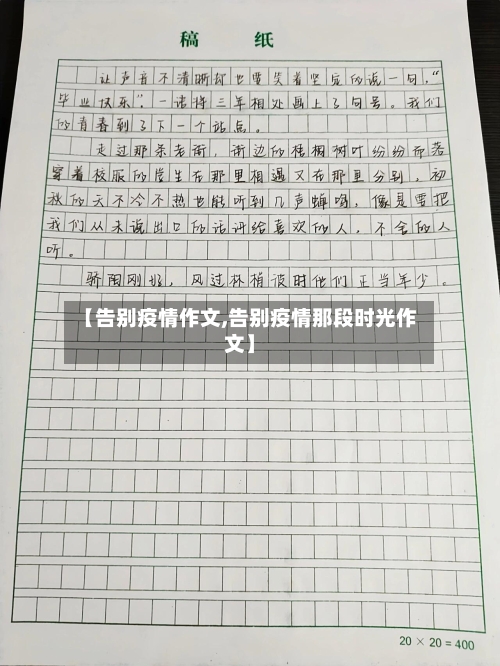 稿 纸
让声音不清晰却也要笑着坚定的说一句,“
毕业快乐”。一语将三年相处画上了句号。我们
的青春到了下一个站点。
走过那条老街,街边的梧桐树叶纷纷而落
穿着校服的学生在那里相遇又在那里分别,初
秋的天不冷不热也能听到几声蝉鸣,像是要把
我们从未说出口的话讲给喜欢的人,不舍的人
听。
骄阳刚好,风过林梢彼时他们正当年少。
【告别疫情作文,告别疫情那段时光作
文】
20 × 20 = 400